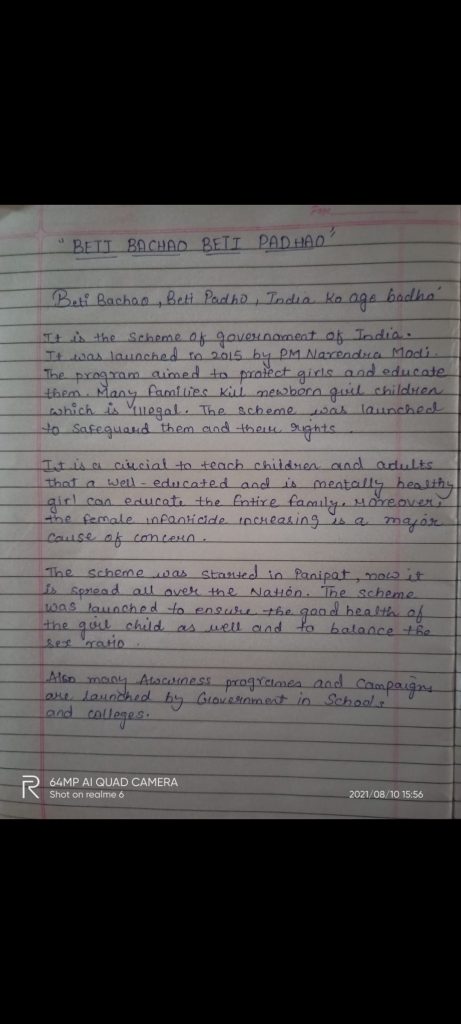 "BETI BACHAO BETI PADHAO"
Beti Bachao, Beti Padho, India Ko age badho
It is the Scheme of governoment of India.
It was launched in 2015 by PM Narendra Modi.
The program aimed to protect girls and educate
them. Many families kill newborn girl children
which is illegal. The scheme was launched
to safeguard them and their rights.
It is a crucial to teach children and adults
that a well-educated and is mentally healthy
girl can educate the Entire family. Moreover,
the female infanticide increasing is a major
cause of concern.
The scheme was started in Panipat, now it
is spread all over the Nation. The scheme
was launched to ensure the good health of
the girl child as well and to balance the
sex ratio.
Also many Awareness programes and Campaigns
are launched by Government in Schools
and colleges.
64MP AI QUAD CAMERA
Shot on realme 6
2021/08/10 15:56